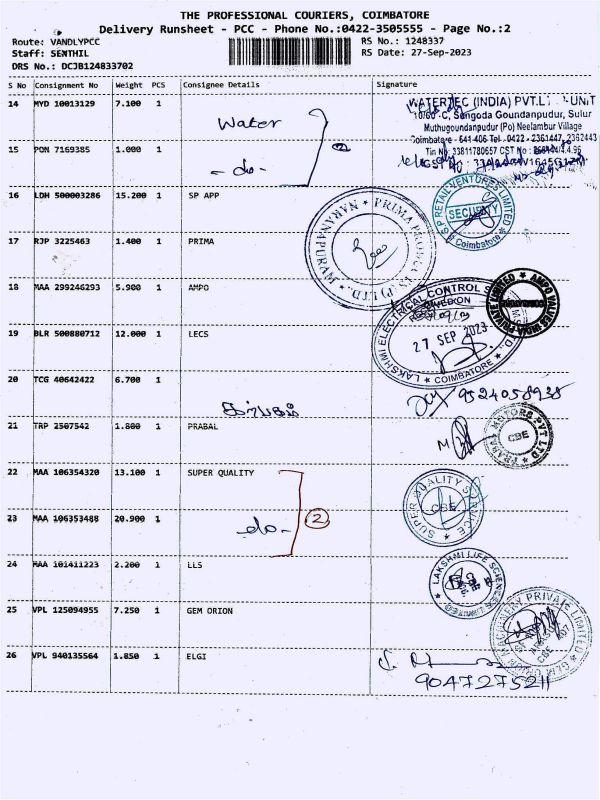 THE PROFESSIONAL COURIERS, COIMBATORE
Delivery Runsheet - PCC - Phone No.:0422-3505555 - Page No.:2
Route: VANDLYPCC
RS No.: 1248337
Staff: SENTHIL
RS Date: 27-Sep-2023
DRS No.: DCJB124833702
S No Consignment No Weight PCS Consignee Details Signature
14 MYD 10013129 7.100 1
Water
WATERTEC (INDIA) PVT.LTD-UNIT
10/60-C, Sengoda Goundanpudur, Sulur
Muthugoundanpudur (Po) Neelambur Village
Coimbatore - 641 406 Tel. 0422 - 2361447, 2362443
Tin No: 33811780657 CST No:
15 PON 7169385 1.000 1
-do-
2
16 LDH 500003286 15.200 1 SP APP
S P RETAIL VENTURES LIMITED
SECURITY
Coimbatore
17 RJP 3225463 1.400 1 PRIMA
PRIMA PRODUCTS (P) LTD.
18 MAA 299246293 5.900 1 AMPO
AMPO VALVES INDIA PRIVATE LIMITED
19 BLR 500880712 12.000 1 LECS
LAKSHMI ELECTRICAL CONTROL
27 SEP 2023
COIMBATORE
20 TCG 40642422 6.700 1
கற்பகம்
9524058938
21 TRP 2507542 1.800 1 PRABAL
PRABAL MOTORS PVT LTD
CBE
22 MAA 106354320 13.100 1 SUPER QUALITY
SUPER QUALITY SERVICE
CBE
23 MAA 106353488 20.900 1
-do-
2
24 MAA 101411223 2.200 1 LLS
LAKSHMI LIFE SCIENCES LIMITED
25 VPL 125094955 7.250 1 GEM ORION
MACHINERY PRIVATE LIMITED
CBE
26 VPL 940135564 1.850 1 ELGI
9047275211